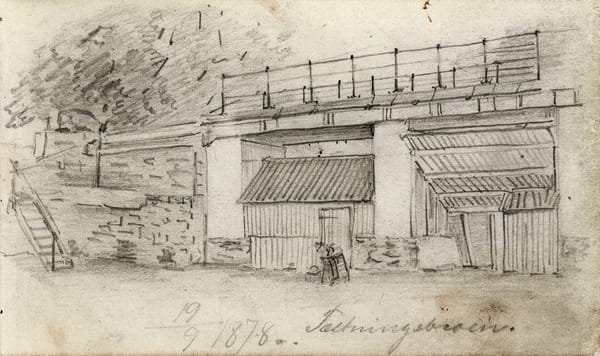 19/9 1878. Fæstningsbroen.